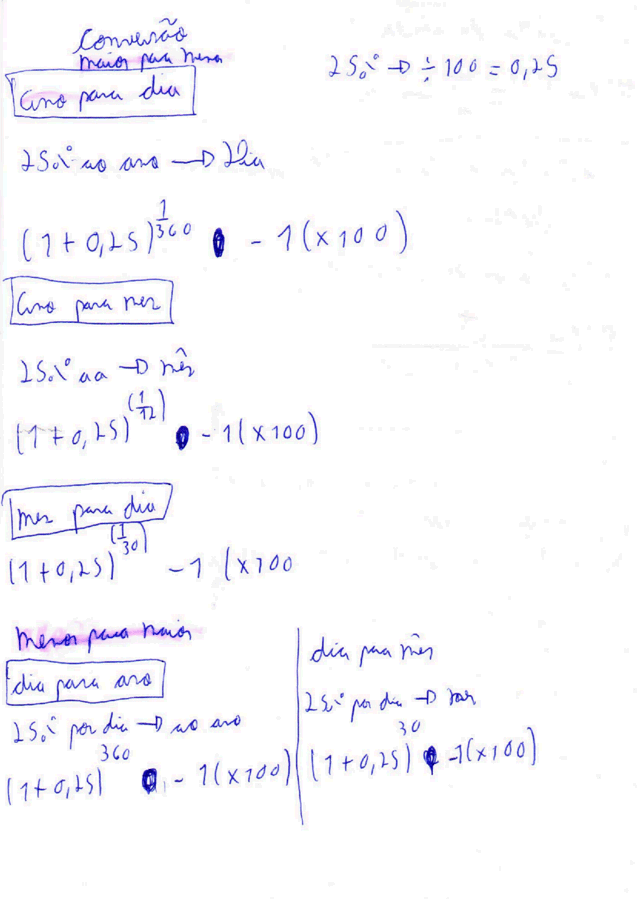 Conversão
maior para menor
25% → ÷ 100 = 0,25
Ano para dia
25% ao ano → Dia
(1 + 0,25)^1/360 - 1 (x100)
Ano para mes
25% aa → mês
(1 + 0,25)^(1/12) - 1 (x100)
mes para dia
(1 + 0,25)^(1/30) - 1 (x100
menor para maior
dia para ano
25% por dia → ao ano
(1 + 0,25)^360 - 1 (x100)
dia para mês
25% por dia → mes
(1 + 0,25)^30 - 1 (x100)